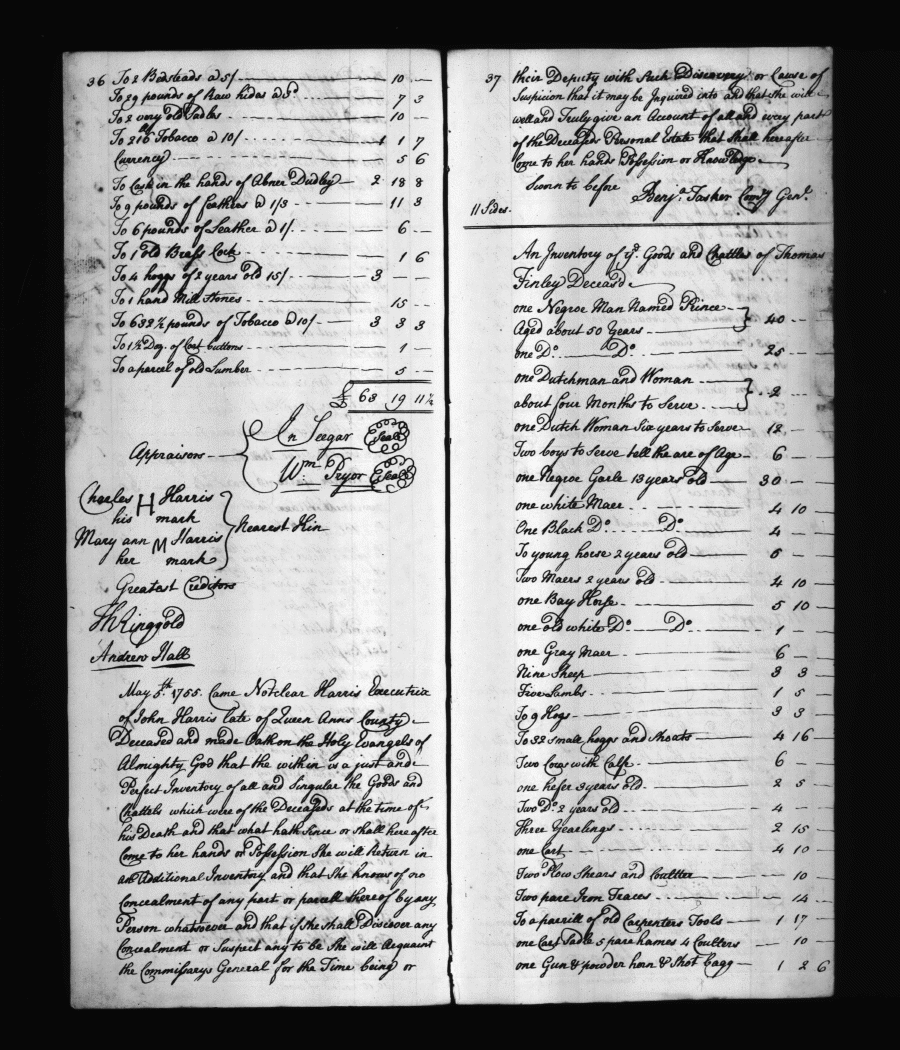 36 To 2 Bedsteads a 5/ 10 —
To 29 pounds of Raw hides a 3d 7 3
To 2 very old Sadles 10 —
To 216 lb Tobacco a 10/ 1 1 7
Currency 5 6
To Cash in the hands of Abner Dudley 2 18 8
To 9 pounds of feathers a 1/3 11 3
To 6 pounds of Leather a 1/ 6 —
To 1 old Brass Lock 1 6
To 4 hoggs of 2 years old 15/ 3 — —
To 1 hand Mill Stones 15 —
To 632½ pounds of Tobacco a 10/ 3 3 3
To 1½ Doz. of Coat buttons 1 —
To a parcel of old Lumber 5 —
£ 63 19 11½
Jn Seegar Seal
Appraisors
Wm. Pryor Seal
Charles H Harris
his mark
Nearest Kin
Mary ann M Harris
her mark
Greatest Creditors
Th Ringgold
Andrew Hall
May 5th. 1755. Came Notclear Harris Executrix
of John Harris late of Queen Anns County
Deceased and made Oath on the Holy Evangels of
Almighty God that the within is a just and
Perfect Inventory of all and Singular the Goods and
Chattels which were of the Deceaseds at the time of
his Death and that what hath Since or Shall hereafter
Come to her hands or Possession She will Return in
an Additional Inventory and that She knows of no
Concealment of any part or parcell thereof by any
Person whatsoever and that if She Shall Discover any
Concealment or Suspect any to be She will Acquaint
the Commissarys General for the Time being or
37 their Deputy with Such Discovery or Cause of
Suspicion that it may be Inquired into and that She will
well and Truly give an Account of all and every part
of the Deceaseds Personal Estate that Shall hereafter
Come to her hands Possession or Knowledge
Sworn to before Benja. Tasker Comy Genl.
11 Sides.
An Inventory of ye. Goods and Chattles of Thomas
Finley Deceasd
one Negroe Man Named Prince
Aged about 50 Years 40 —
one Do. Do. 25 —
one Dutchman and Woman
about four Months to Serve 2 —
one Dutch Woman Six years to Serve 12 —
Two boys to Serve tell the are of Age 6 —
one Negroe Garle 13 years old 30 —
one white Maer 4 10
One Black Do. Do 4 —
To young horse 2 years old 6 —
Two Maers 2 years old 4 10
one Bay Horse 5 10
one old white Do. Do 1 —
one Gray Maer 6 —
Nine Sheep 3 3
Five Lambs 1 5
To 9 Hogs 3 3
To 32 small hoggs and Shoats 4 16
Two Cows with Calf 6 —
one hefer 3 years old 2 5
Two Do. 2 years old 4 —
Three Yearlings 2 15
one Cart 4 10
Two Plow Shears and Coultter 10 —
Two pare Iron Traces 14 —
To a parrill of old Carpenters Tools 1 17
one Cart Sadle 5 pare hames 4 Coulters 10 —
one Gun & powder horn & Shot bagg 1 2 6